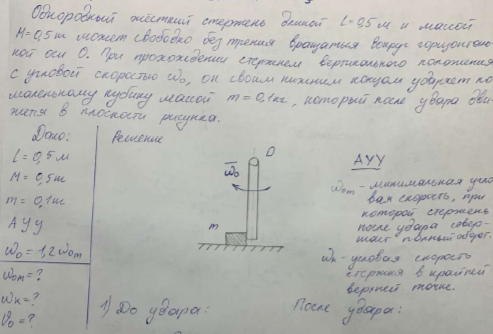 Однородный жёсткий стержень длиной L=0,5м и массой
M=0,5кг может свободно без трения вращаться вокруг горизонталь-
ной оси О. При прохождении стержнем вертикального положения
с угловой скоростью ω₀, он своим нижним концом ударяет по
маленькому кубику массой m=0,1кг, который после удара дви-
жется в плоскости рисунка.
Дано:
L=0,5м
M=0,5кг
m=0,1кг
АУУ
ω₀=1,2ω₀m
ω₀m=?
ωк=?
υ₀=?
Решение
О
ω₀
m
1) До удара:
После удара:
АУУ
ω₀m - минимальная угло-
вая скорость, при
которой стержень
после удара совер-
шает полный оборот.
ωк - угловая скорость
стержня в крайней
верхней точке.